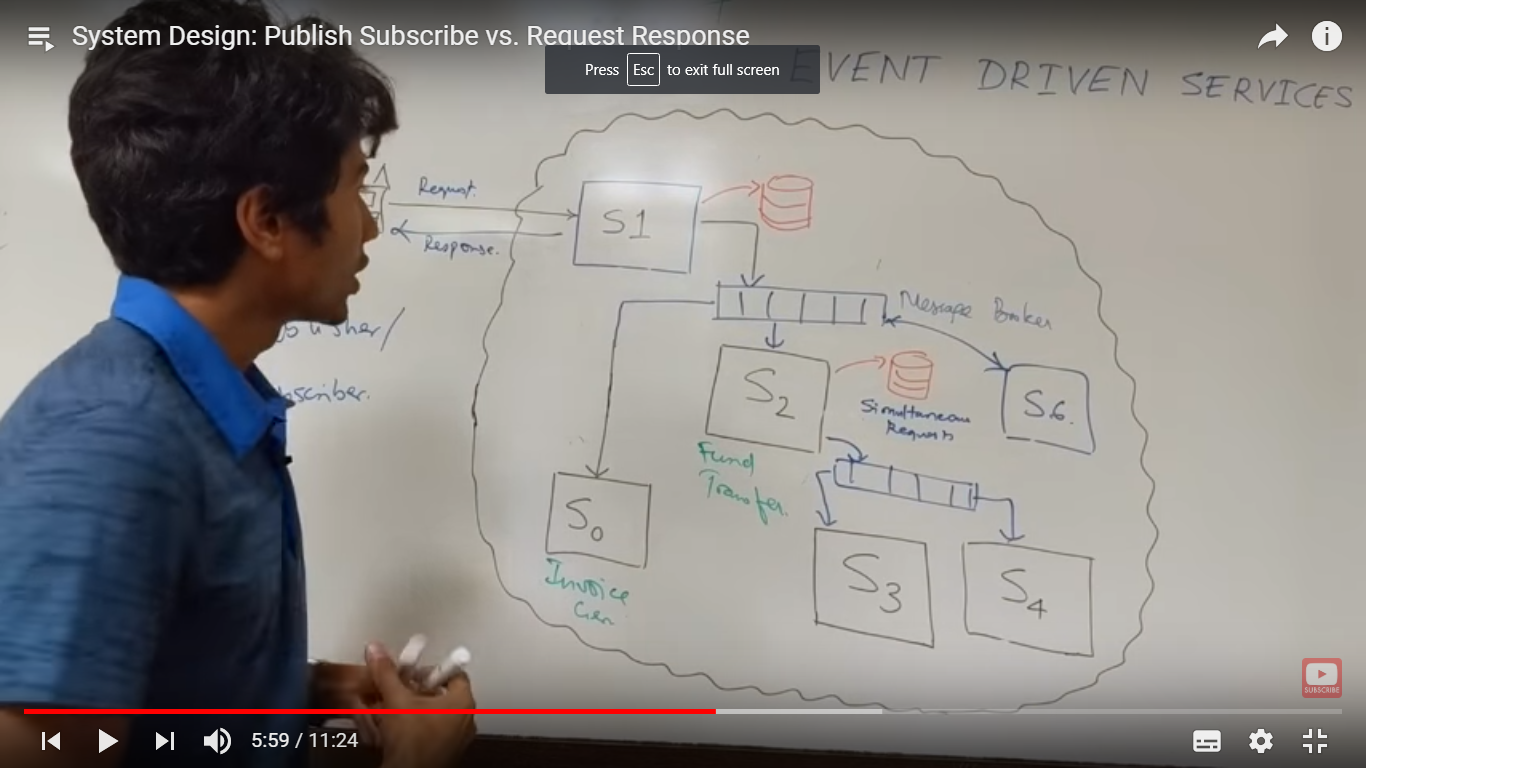 System Design: Publish Subscribe vs. Request Response
Press Esc to exit full screen
EVENT DRIVEN SERVICES
Request.
Response.
S1
Message Broker
S2
Simultaneous
Requests
S6.
Fund
Transfer.
S0
Invoice
Gen
S3
S4
SUBSCRIBE
5:59 / 11:24